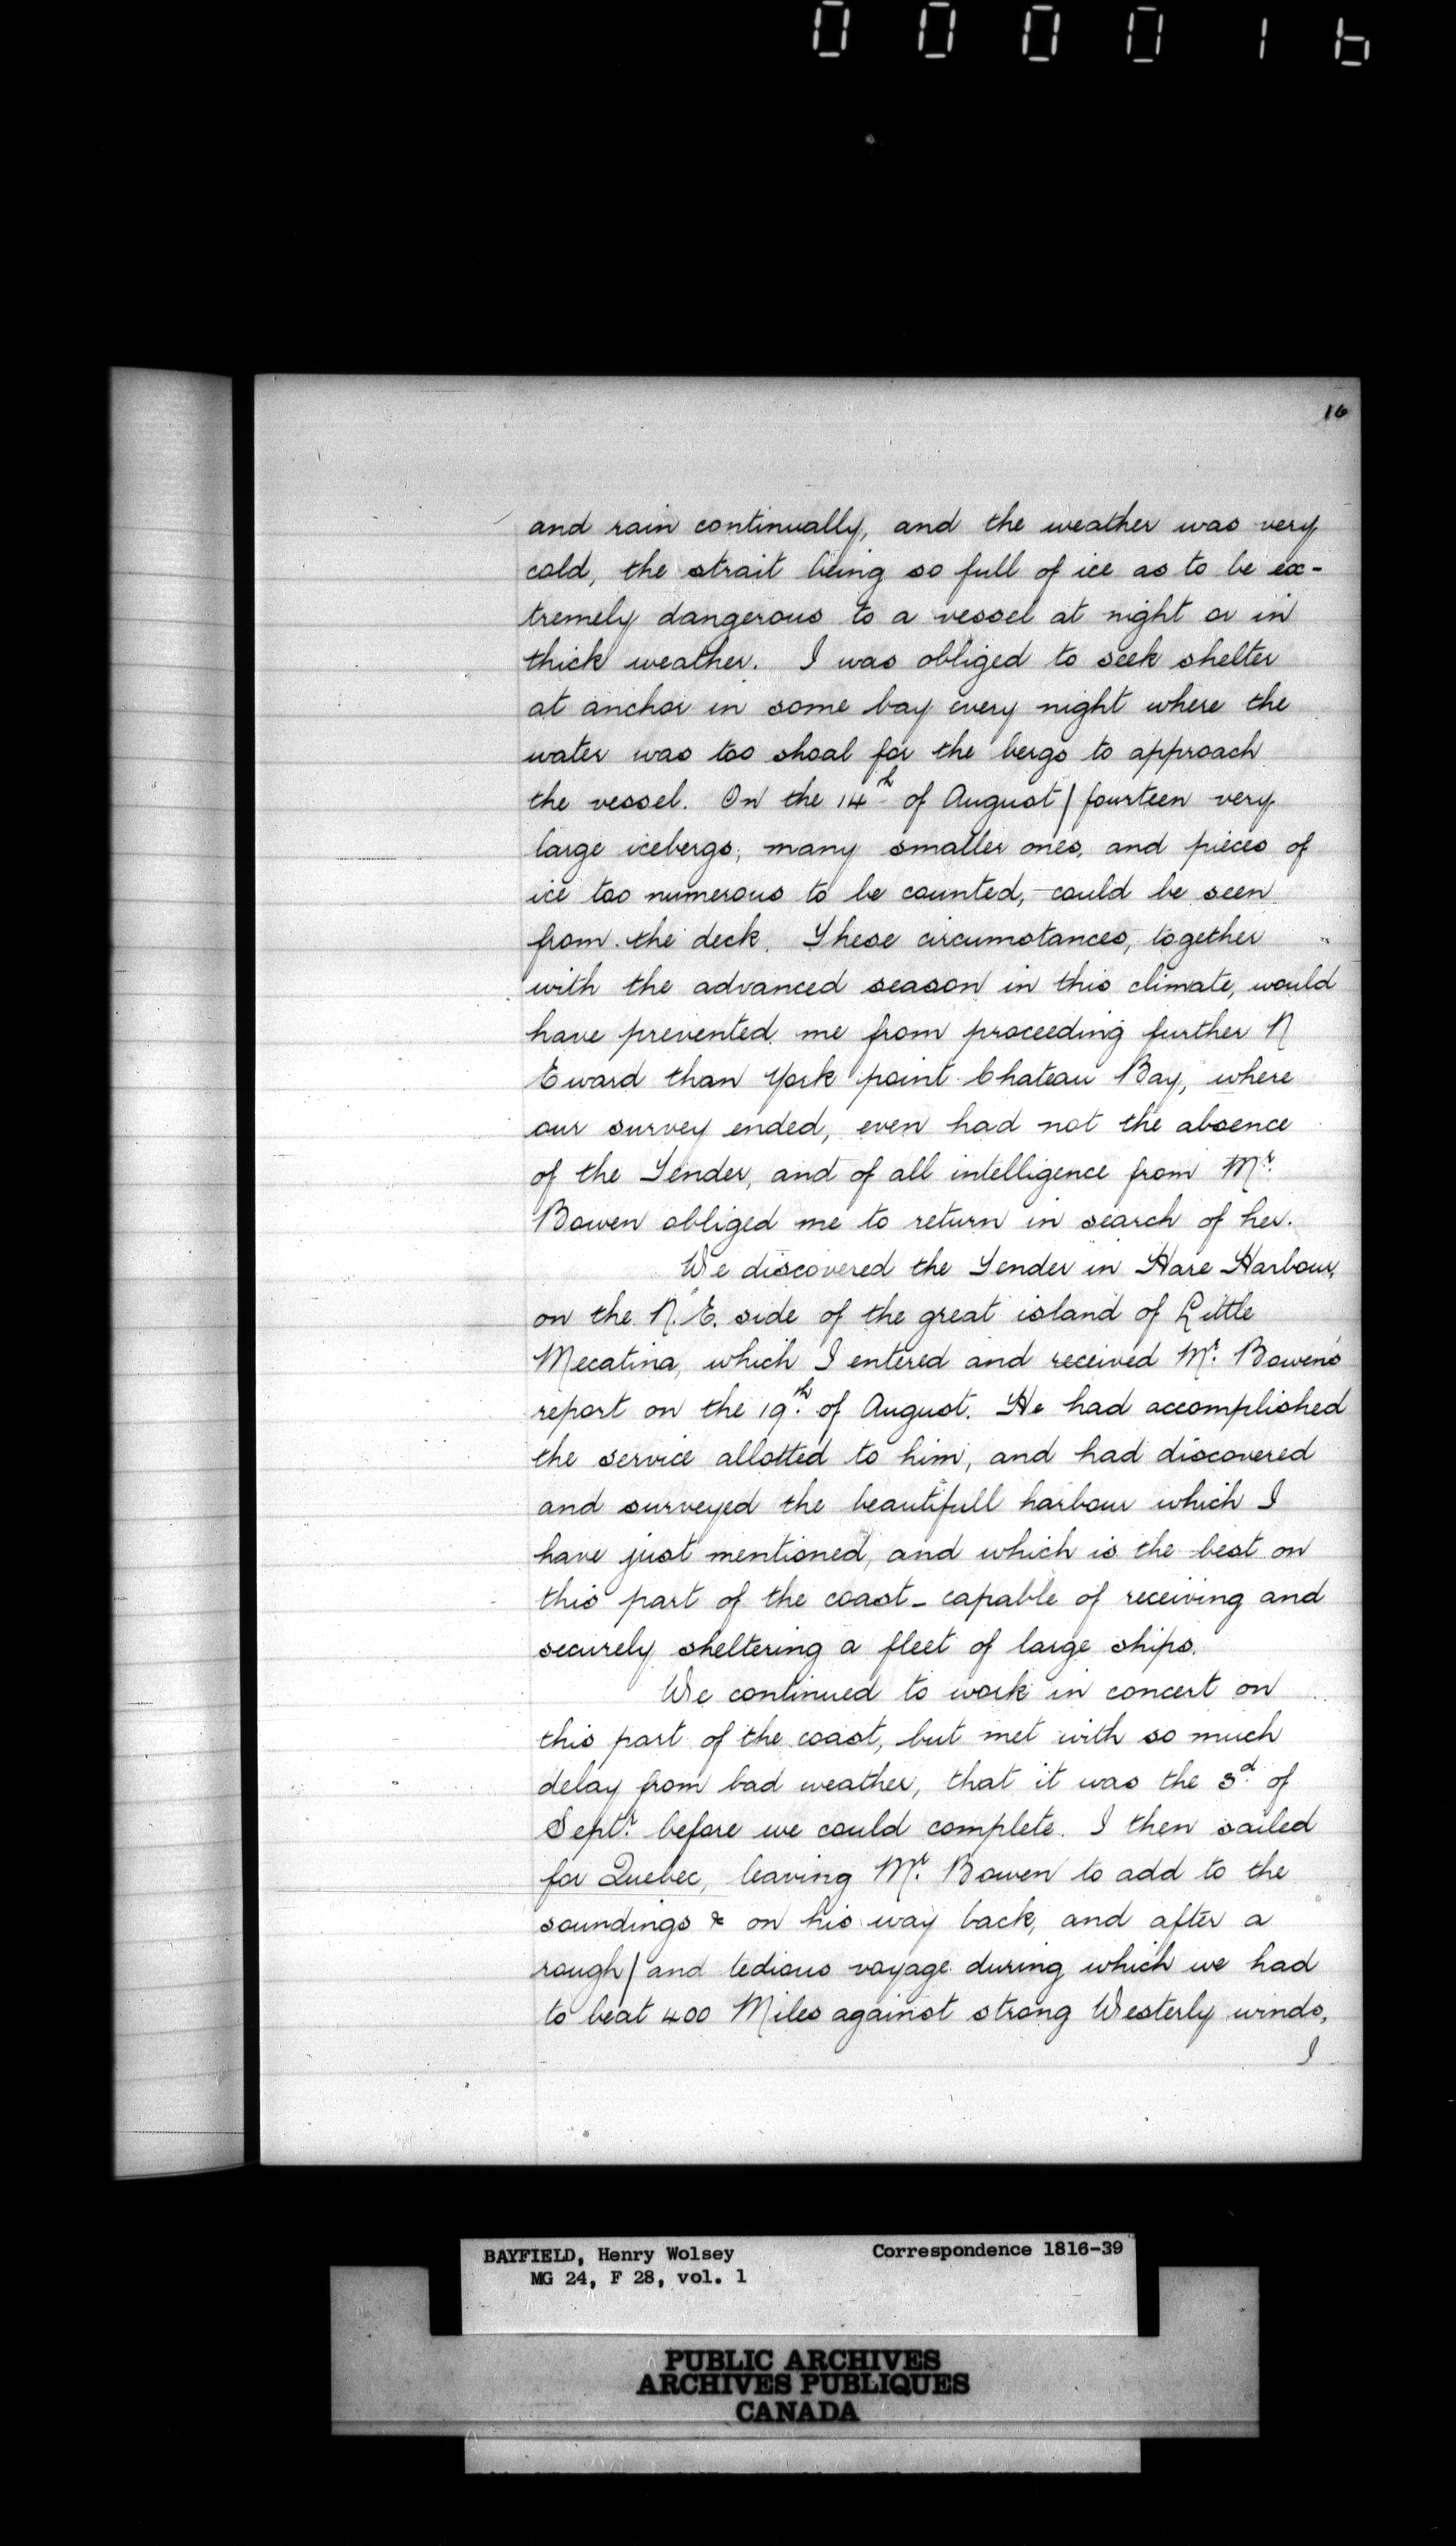 000016
16
and rain continually, and the weather was very
cold, the strait being so full of ice as to be ex-
tremely dangerous to a vessel at night or in
thick weather. I was obliged to seek shelter
at anchor in some bay every night where the
water was too shoal for the bergs to approach
the vessel. On the 14th of August / fourteen very
large icebergs, many smaller ones, and pieces of
ice too numerous to be counted, could be seen
from the deck. These circumstances, together
with the advanced season in this climate, would
have prevented me from proceeding further N
Eward than York point Chateau Bay, where
our survey ended, even had not the absence
of the Tender, and of all intelligence from Mr.
Bowen obliged me to return in search of her.
We discovered the Tender in Hare Harbour,
on the N.E. side of the great island of Little
Mecatina, which I entered and received Mr. Bowen's
report on the 19th. of August. He had accomplished
the service allotted to him, and had discovered
and surveyed the beautifull harbour which I
have just mentioned, and which is the best on
this part of the coast - capable of receiving and
securely sheltering a fleet of large ships.
We continued to work in concert on
this part of the coast, but met with so much
delay from bad weather, that it was the 3d. of
Septr. before we could complete. I then sailed
for Quebec, leaving Mr. Bowen to add to the
soundings & on his way back, and after a
rough / and tedious voyage during which we had
to beat 400 Miles against strong Westerly winds,
I
BAYFIELD, Henry Wolsey Correspondence 1816-39
MG 24, F 28, vol. 1
PUBLIC ARCHIVES
ARCHIVES PUBLIQUES
CANADA